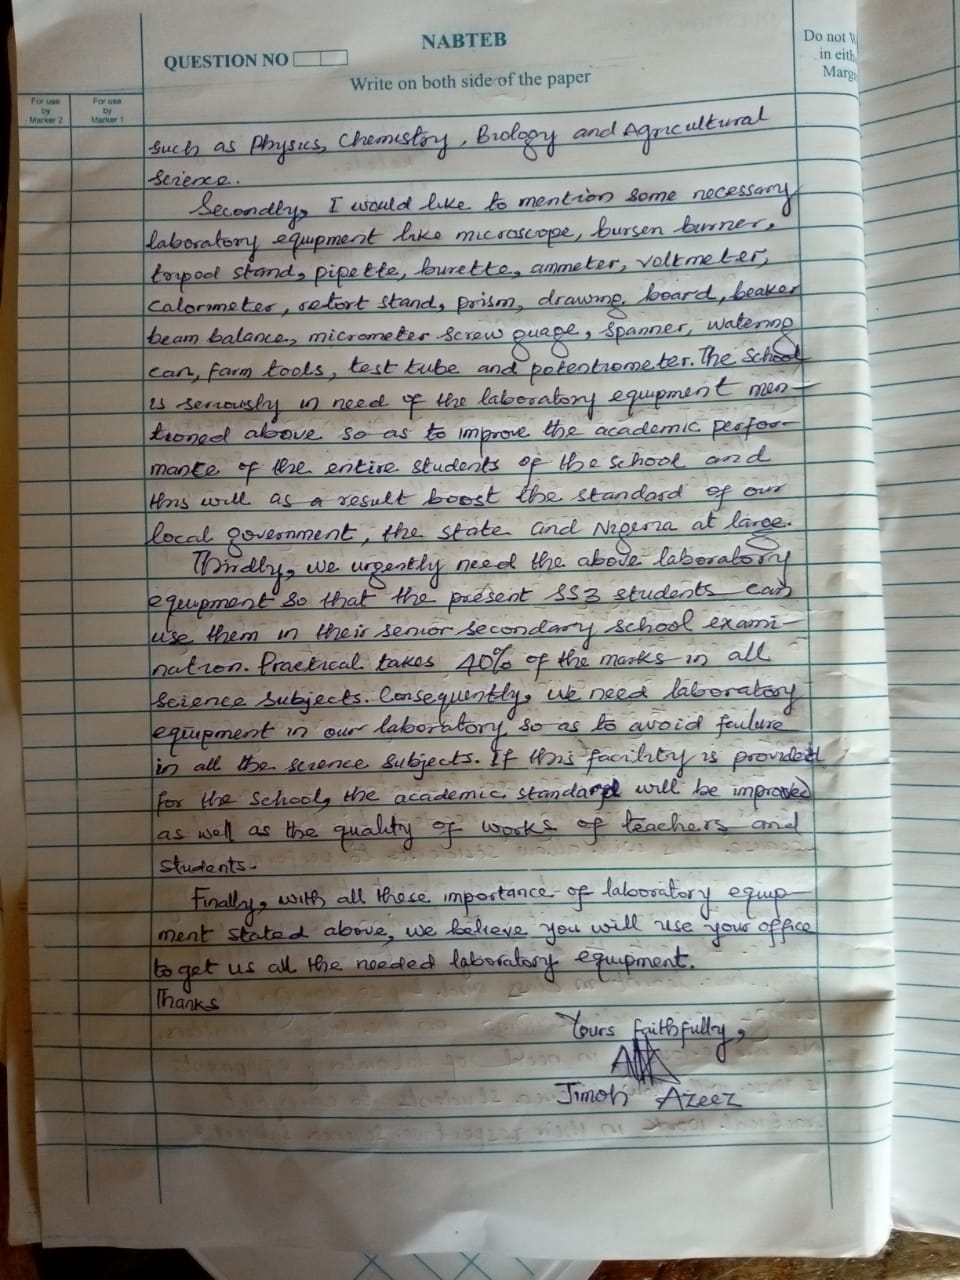 NABTEB
QUESTION NO
Write on both side of the paper
Do not
in eith
Marg
For use
by
Marker 2
For use
by
Marker 1
such as Physics, Chemistry, Biology and Agricultural
Science.
Secondly, I would like to mention some necessary
laboratory equipment like microscope, bursen burner,
toupod stand, pipette, burette, ammeter, voltmeter,
Calormeter, retort stand, prism, drawing board, beaker
beam balance, micrometer screw guage, spanner, watering
can, farm tools, test tube and potentiometer. The School
is seriously in need of the laboratory equipment men-
tioned above so as to improve the academic perfor-
mance of the entire students of the school and
this will as a result boost the standard of our
local government, the state and Nigeria at large.
Thirdly, we urgently need the above laboratory
equipment so that the present SS3 students can
use them in their senior secondary school exami-
nation. Practical takes 40% of the marks in all
Science Subjects. Consequently, we need laboratory
equipment in our laboratory so as to avoid feulure
in all the science subjects. If this facility is provided
for the School, the academic standard will be improved
as well as the quality of works of teachers and
students.
Finally, with all these importance of laboratory equip-
ment stated above, we believe you will use your office
to get us all the needed laboratory equipment.
Thanks
Yours faithfully,
Jimoh Azeez